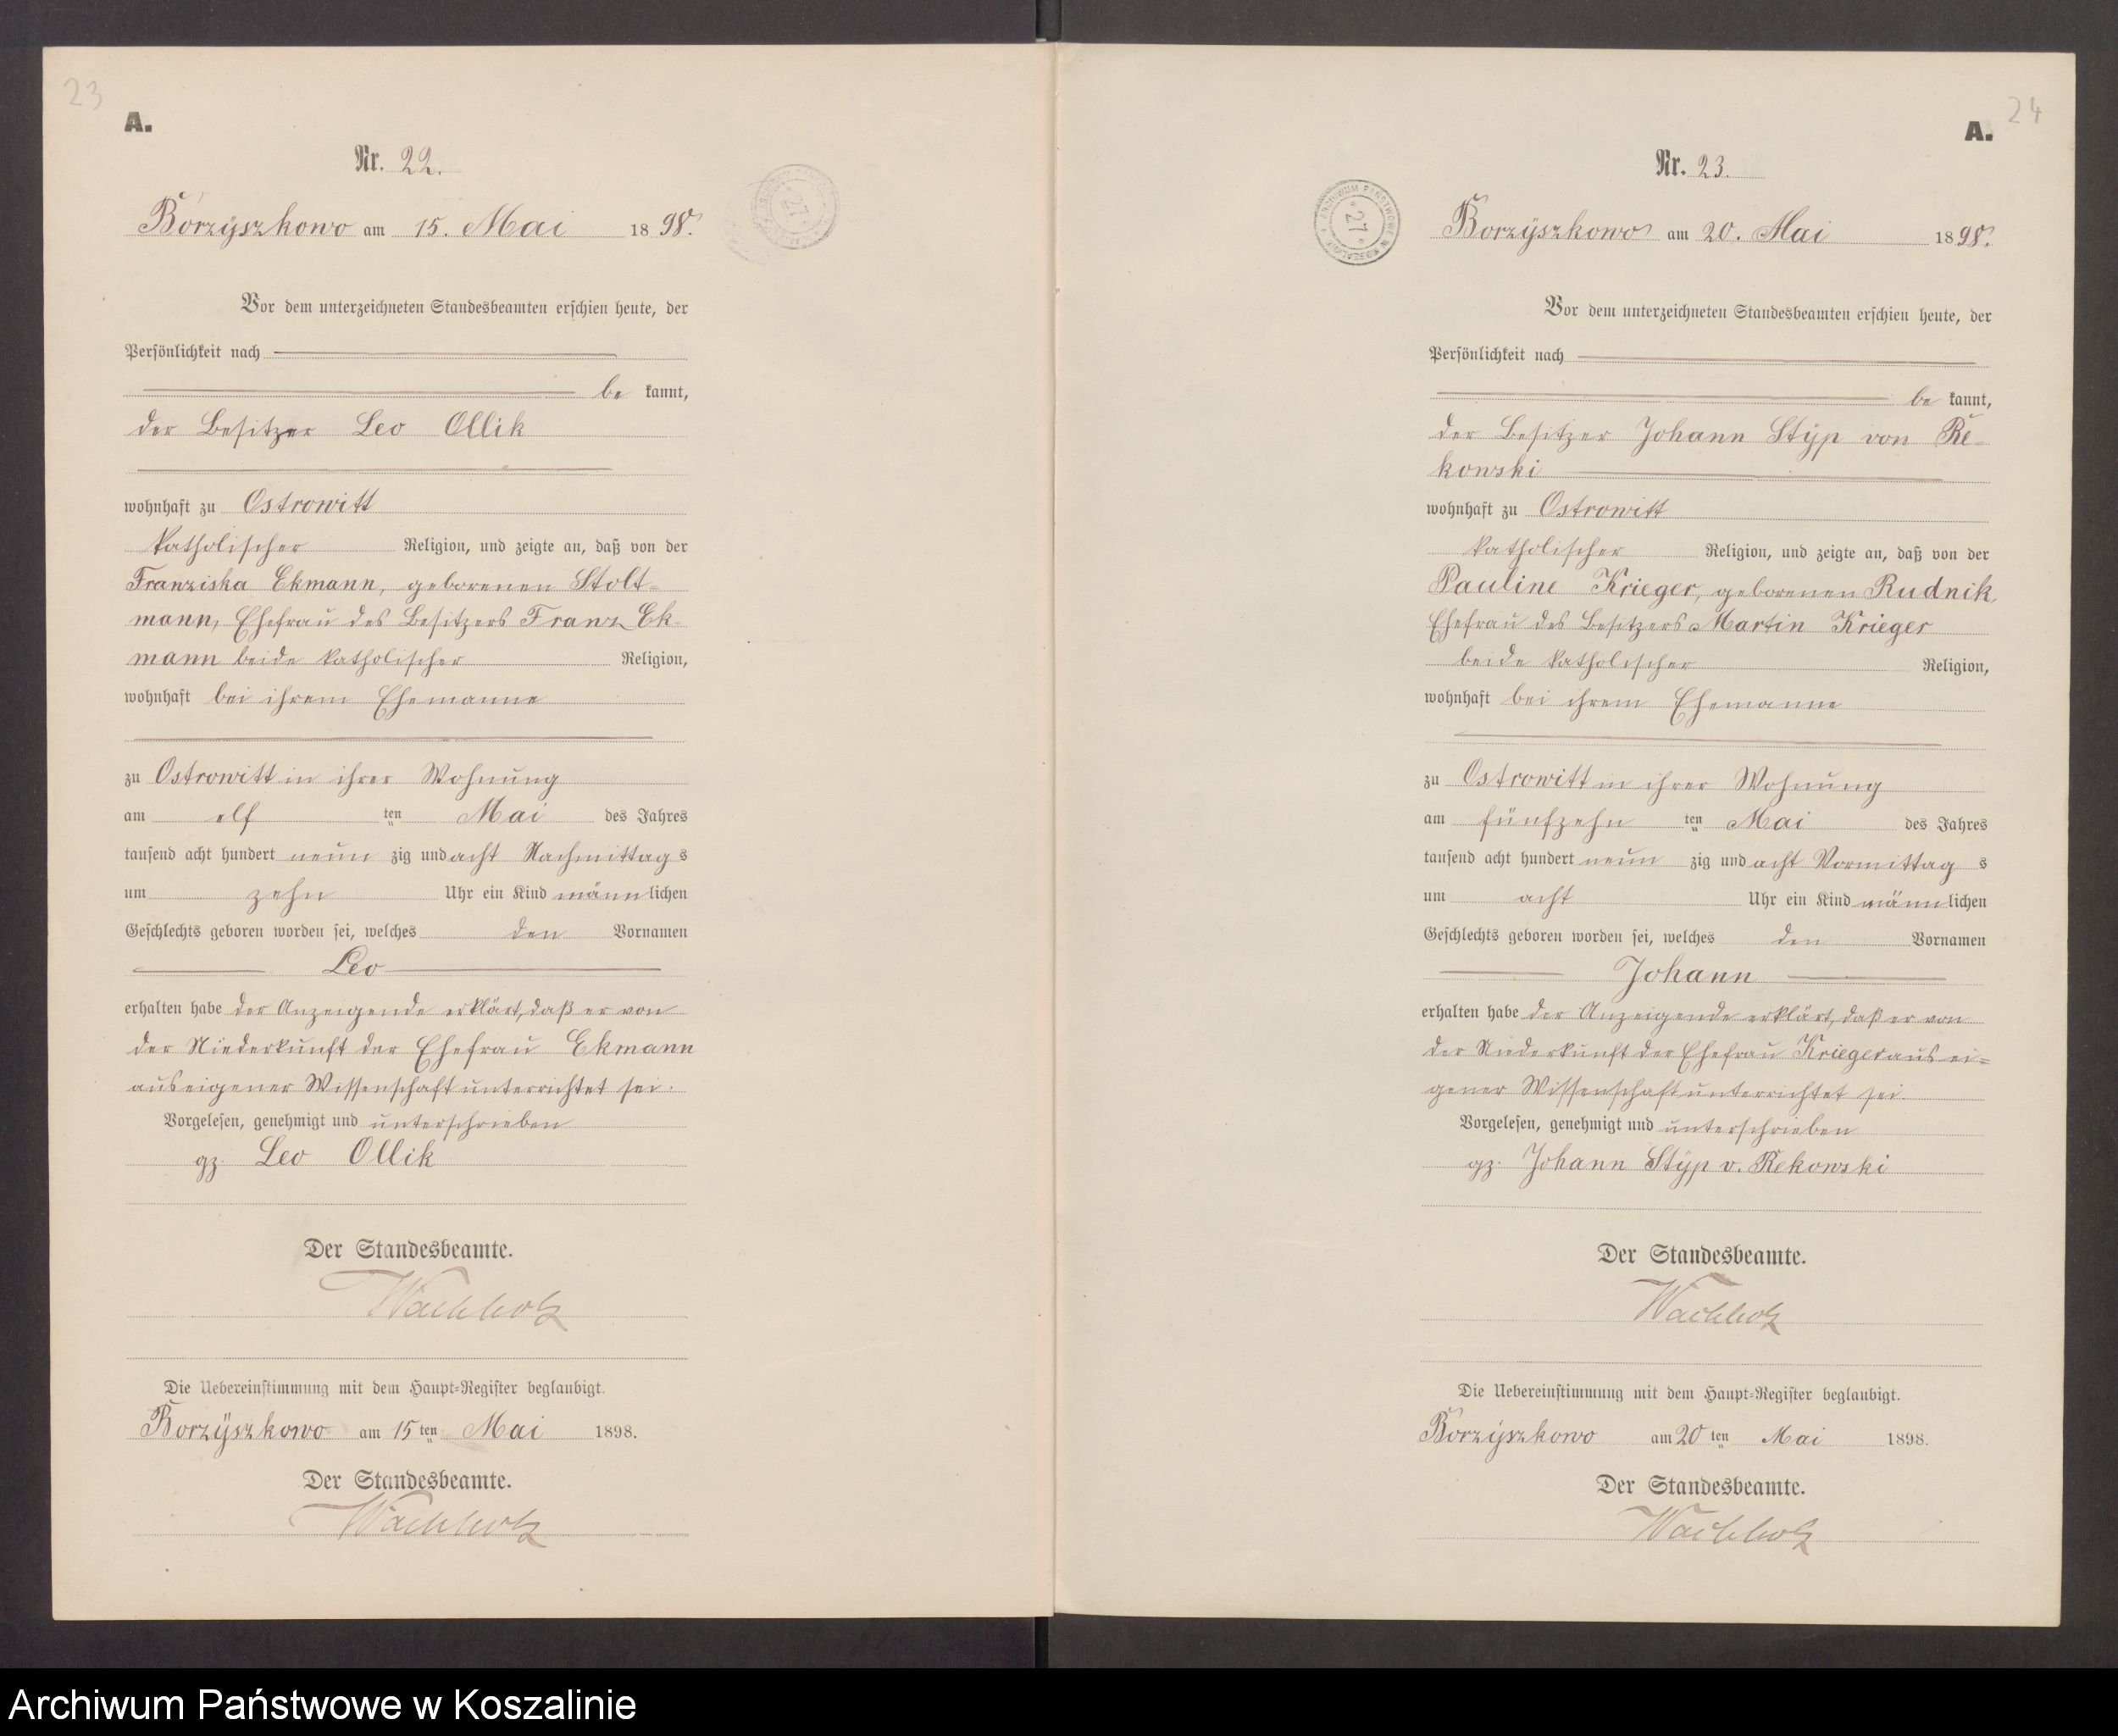 23
A.
Nr. 22.
Borzÿszkowo am 15. Mai 1898.
Vor dem unterzeichneten Standesbeamten erschien heute, der
Persönlichkeit nach
be kannt,
der Besitzer Leo Ollik
wohnhaft zu Ostrowitt
katholischer Religion, und zeigte an, daß von der
Franziska Ekmann, geborenen Stolt-
mann, Ehefrau des Besitzers Franz Ek-
mann beide katholischer Religion,
wohnhaft bei ihrem Ehemanne
zu Ostrowitt in ihrer Wohnung
am elf ten Mai des Jahres
tausend acht hundert neun zig und acht Nachmittag s
um zehn Uhr ein Kind männlichen
Geschlechts geboren worden sei, welches den Vornamen
Leo
erhalten habe der Anzeigende erklärt, daß er von
der Niederkunft der Ehefrau Ekmann
aus eigener Wissenschaft unterrichtet sei.
Vorgelesen, genehmigt und unterschrieben
gz. Leo Ollik
Der Standesbeamte.
Wachholz
Die Uebereinstimmung mit dem Haupt-Register beglaubigt.
Borzÿszkowo am 15ten Mai 1898.
Der Standesbeamte.
Wachholz
24
A.
Nr. 23.
ARCHIWUM PAŃSTWOWE W KOSZALINIE
27
Borzÿszkowo am 20. Mai 1898.
Vor dem unterzeichneten Standesbeamten erschien heute, der
Persönlichkeit nach
be kannt,
der Besitzer Johann Stÿp von Re-
kowski
wohnhaft zu Ostrowitt
katholischer Religion, und zeigte an, daß von der
Pauline Krieger, geborenen Rudnik,
Ehefrau des Besitzers Martin Krieger
beide katholischer Religion,
wohnhaft bei ihrem Ehemanne
zu Ostrowitt in ihrer Wohnung
am fünfzehn ten Mai des Jahres
tausend acht hundert neun zig und acht Vormittag s
um acht Uhr ein Kind männlichen
Geschlechts geboren worden sei, welches den Vornamen
Johann
erhalten habe der Anzeigende erklärt, daß er von
der Niederkunft der Ehefrau Krieger aus ei-
gener Wissenschaft unterrichtet sei.
Vorgelesen, genehmigt und unterschrieben
gz. Johann Stÿp v. Rekowski
Der Standesbeamte.
Wachholz
Die Uebereinstimmung mit dem Haupt-Register beglaubigt.
Borzÿszkowo am 20 ten Mai 1898.
Der Standesbeamte.
Wachholz
Archiwum Państwowe w Koszalinie